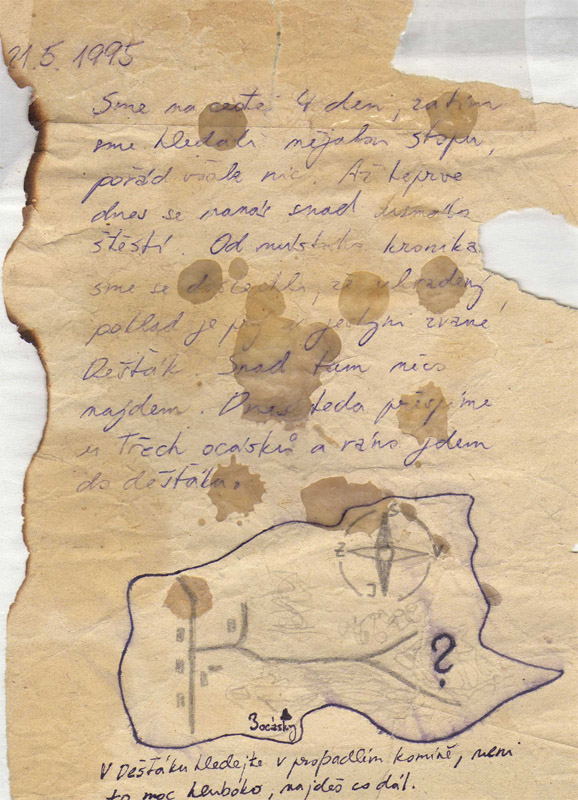 21.5.1995
Sme na cestě 4 den, zatím
sme hledali nějakou stopu,
pořád však nic. Až teprve
dnes se na nás snad usmálo
štěstí. Od místního kronikáře
sme se dozvěděli, že ukradený
poklad je prý v jeskyni zvané
Dešťák. Snad tam něco
najdem. Dnes teda přespíme
u Třech ocásků a ráno jdem
do dešťáku.
S
Z V
J
?
3 ocásky
V Dešťáku hledejte v propadlím komíně, neni
to moc hluboko, najdeš co dál.